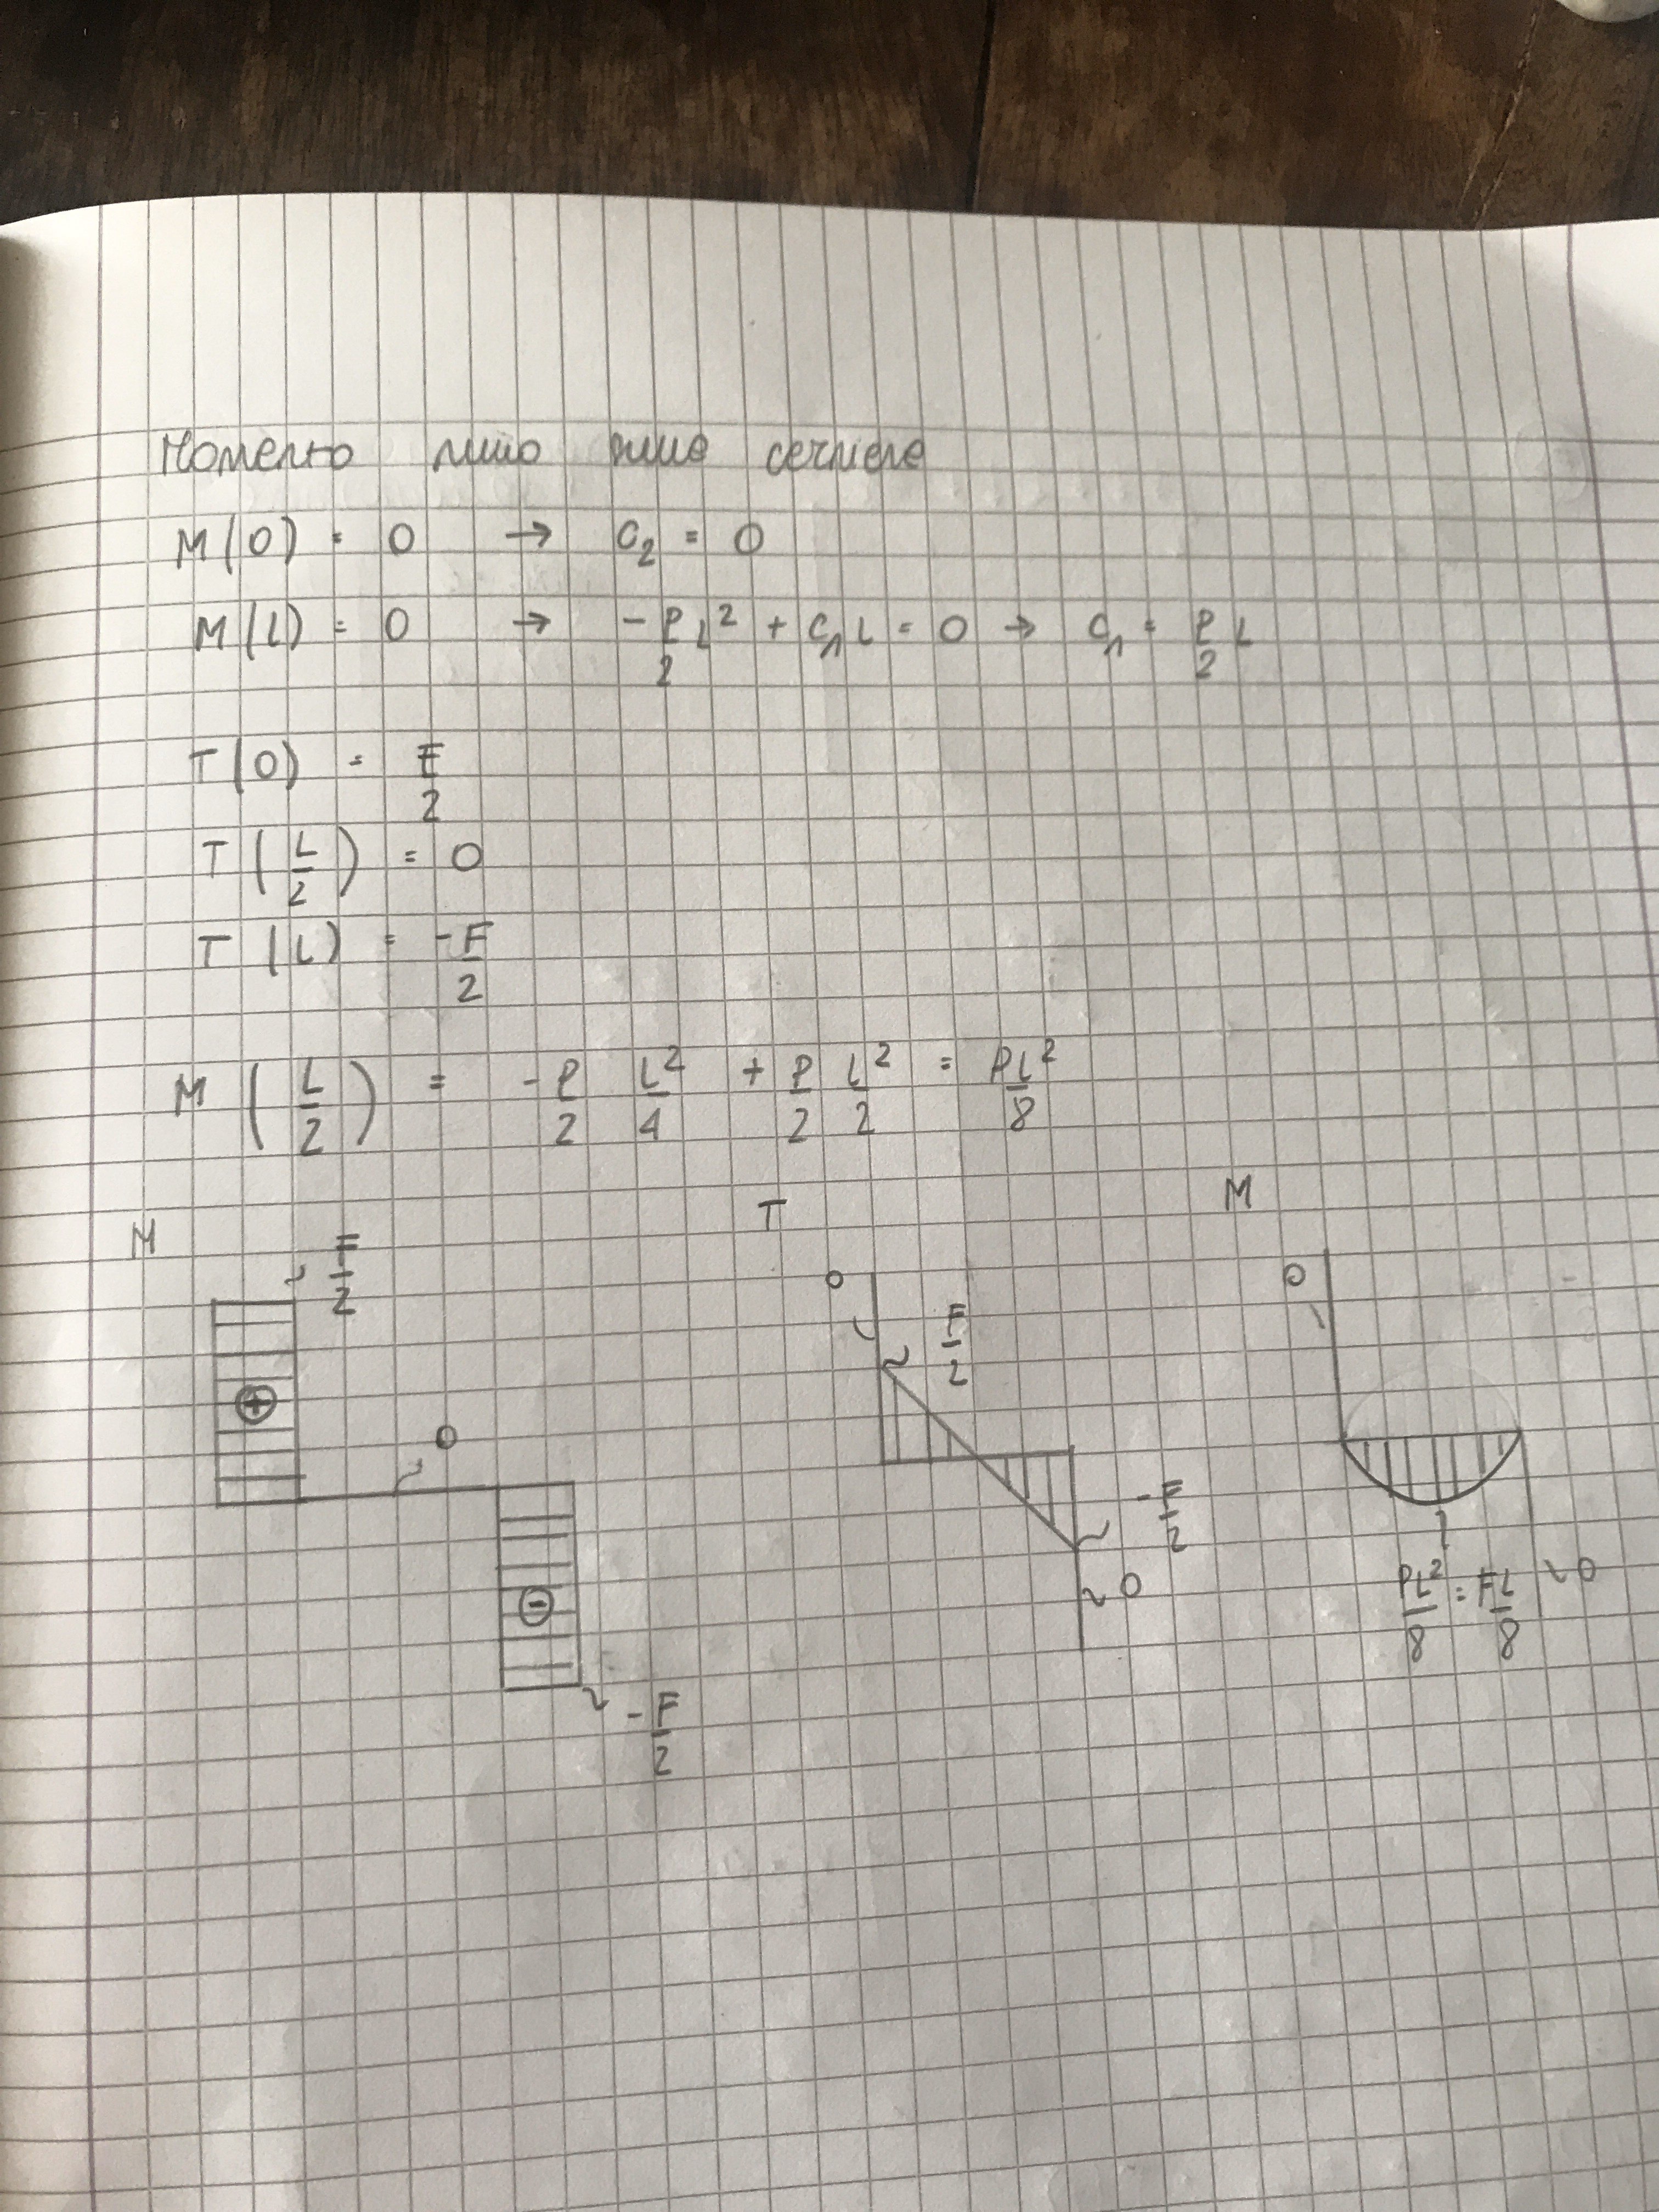 Momento nullo nelle cerniere
M(0) = 0 → C₂ = 0
M(L) = 0 → -P/2 L² + C₁L = 0 → C₁ = P/2 L
T(0) = F/2
T(L/2) = 0
T(L) = -F/2
M(L/2) = -P/2 L²/4 + P/2 L²/2 = PL²/8
N T M
F/2 0 F/2 0
+ 0
-F/2
- 0 PL²/8 = FL/8 0
-F/2